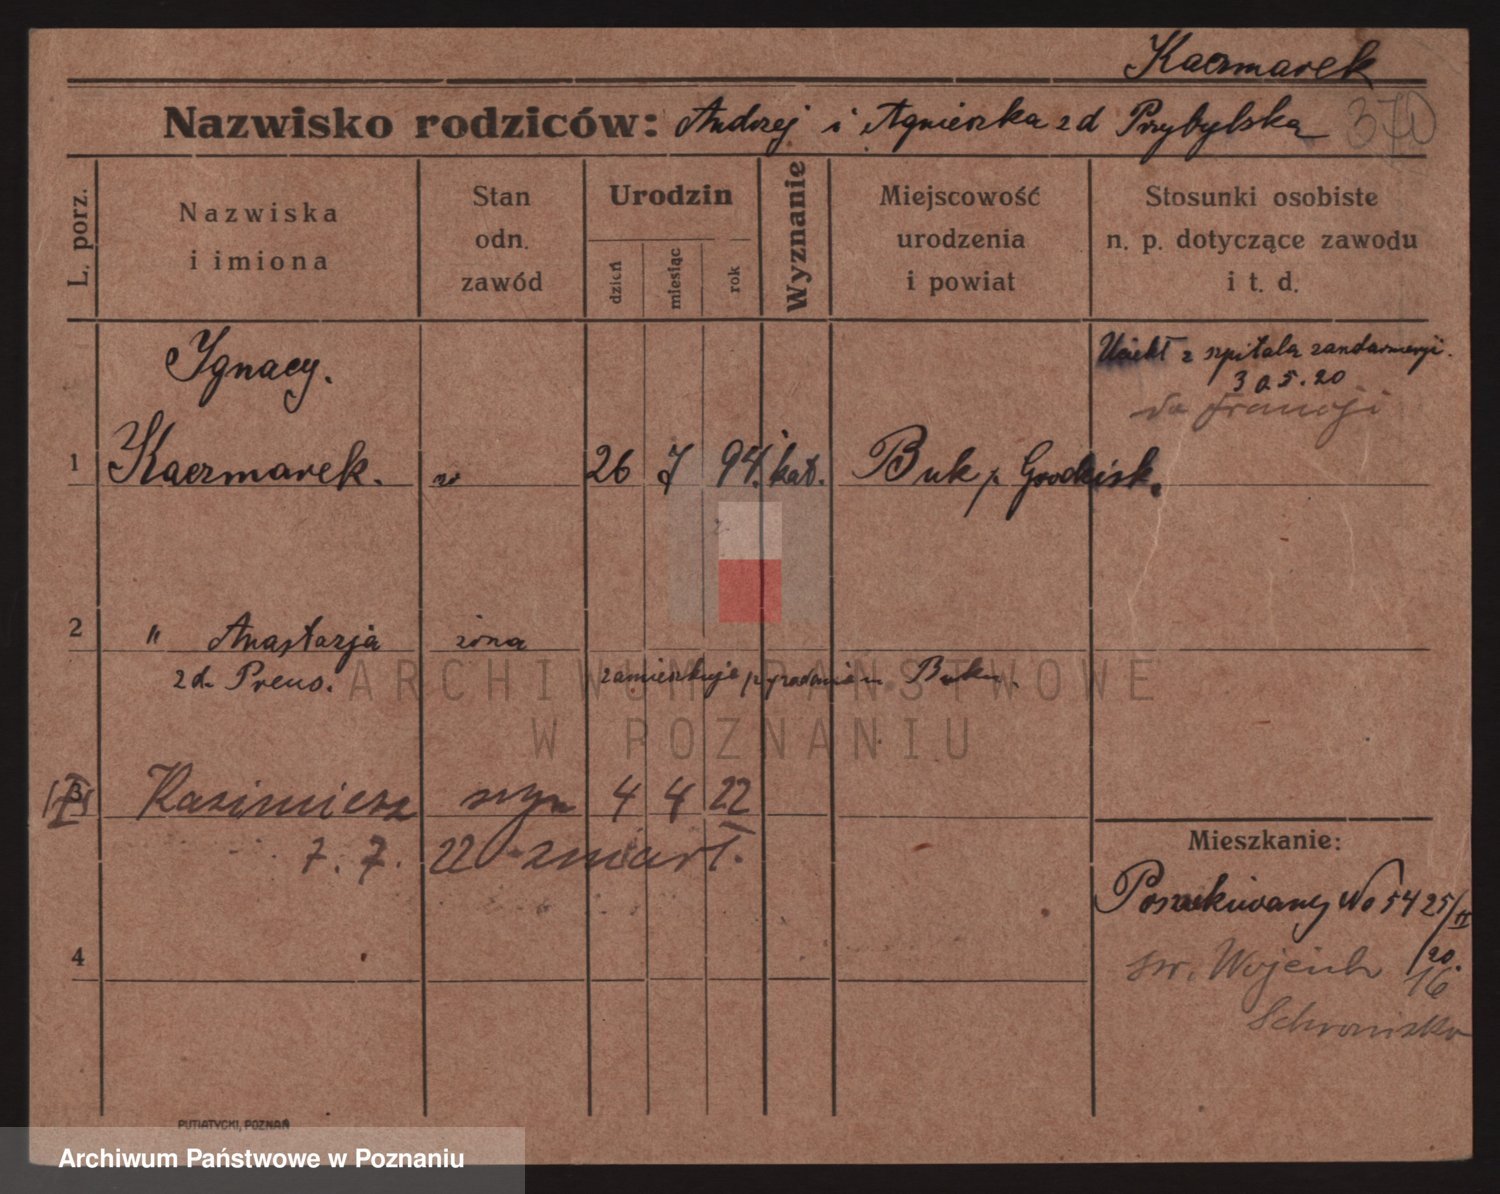 Kaczmarek
Nazwisko rodziców: Andrzej i Agnieszka z d Przybylska 370
L. porz.
Nazwiska
i imiona
Stan
odn.
zawód
Urodzin
dzień
miesiąc
rok
Wyznanie
Miejscowość
urodzenia
i powiat
Stosunki osobiste
n. p. dotyczące zawodu
i t. d.
Uciekł z szpitala zandarmerji.
30.5.20
do Francji
Ignacy.
1 Kaczmarek. 26 7 94. kat. Buk p Grodzisk.
2 " Anastazja żona
z d. Preus. zamieszkuje Buku.
3 Kazimierz syn 4 4 22
7. 7. 22 zmarł.
4
Mieszkanie:
Poszukiwany No 5425/II
20.
św. Wojciech 16
Schronisko
PUTIATYCKI, POZNAŃ
ARCHIWUM PAŃSTWOWE
W POZNANIU
Archiwum Państwowe w Poznaniu